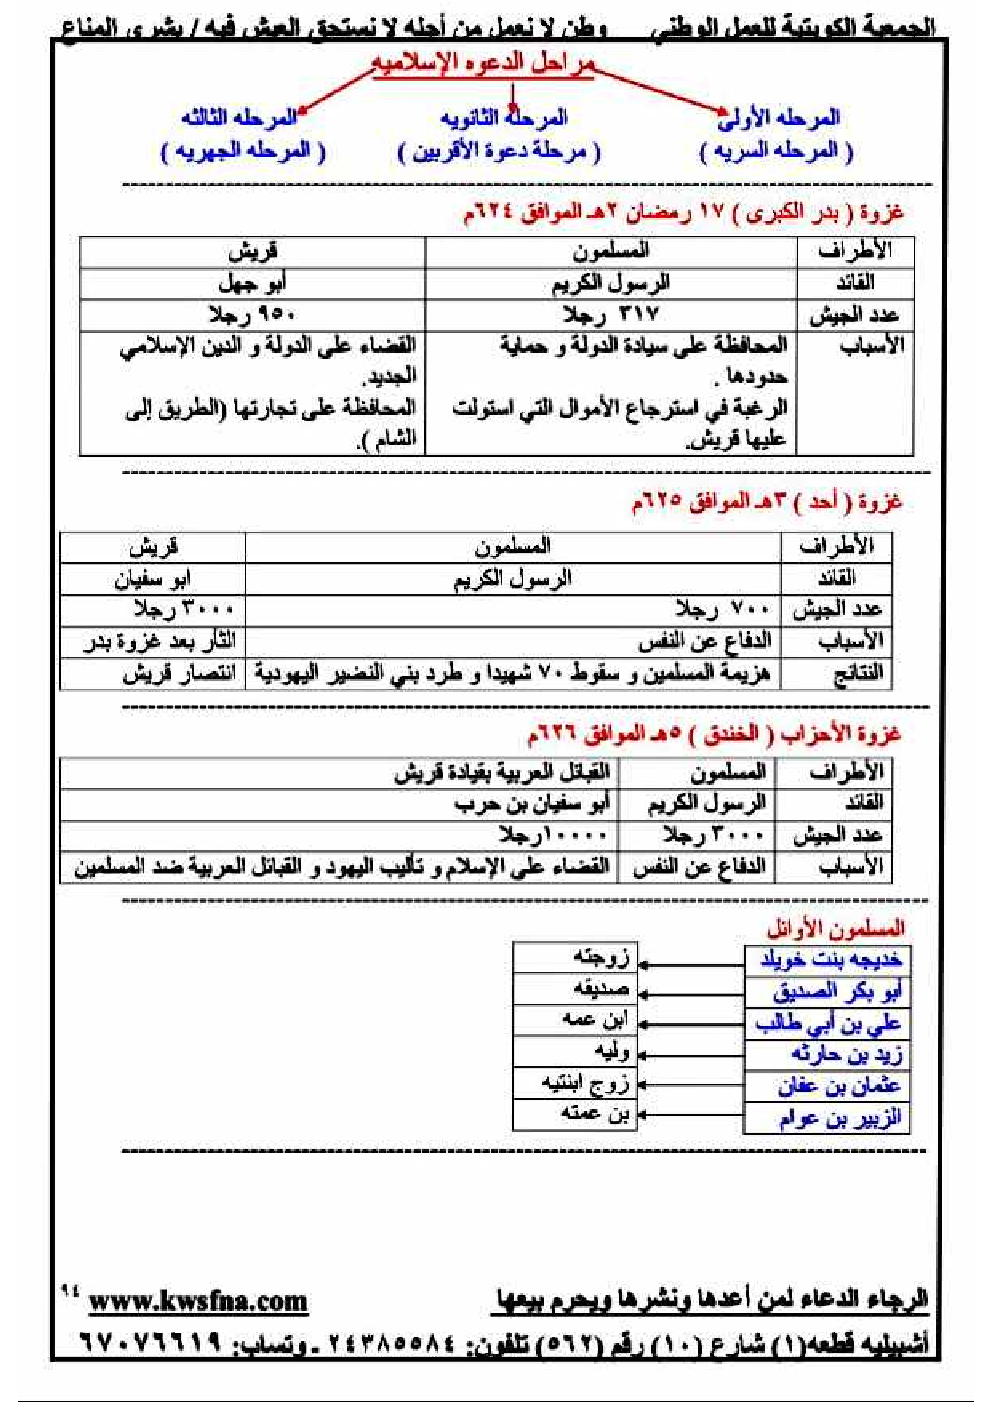 الجمعية الكويتية للعمل الوطني وطن لا نعمل من أجله لا نستحق العيش فيه / بشرى المناع
مراحل الدعوه الإسلاميه
المرحله الأولى المرحله الثانويه المرحله الثالثه
( المرحله السريه ) ( مرحلة دعوة الأقربين ) ( المرحله الجهريه )
غزوة ( بدر الكبرى ) ١٧ رمضان ٢هـ الموافق ٦٢٤م
الأطراف المسلمون قريش
القائد الرسول الكريم أبو جهل
عدد الجيش ٣١٧ رجلا ٩٥٠ رجلا
الأسباب المحافظة على سيادة الدولة و حماية القضاء على الدولة و الدين الإسلامي
حدودها . الجديد.
الرغبة في استرجاع الأموال التي استولت المحافظة على تجارتها (الطريق إلى
عليها قريش. الشام ).
غزوة ( أحد ) ٣هـ الموافق ٦٢٥م
الأطراف المسلمون قريش
القائد الرسول الكريم ابو سفيان
عدد الجيش ٧٠٠ رجلا ٣٠٠٠ رجلا
الأسباب الدفاع عن النفس الثأر بعد غزوة بدر
النتائج هزيمة المسلمين و سقوط ٧٠ شهيدا و طرد بني النضير اليهودية انتصار قريش
غزوة الأحزاب ( الخندق ) ٥هـ الموافق ٦٢٦م
الأطراف المسلمون القبائل العربية بقيادة قريش
القائد الرسول الكريم أبو سفيان بن حرب
عدد الجيش ٣٠٠٠ رجلا ١٠٠٠٠رجلا
الأسباب الدفاع عن النفس القضاء على الإسلام و تأليب اليهود و القبائل العربية ضد المسلمين
المسلمون الأوائل
خديجه بنت خويلد زوجته
أبو بكر الصديق صديقه
علي بن أبي طالب ابن عمه
زيد بن حارثه وليه
عثمان بن عفان زوج ابنتيه
الزبير بن عوام بن عمته
الرجاء الدعاء لمن أعدها ونشرها ويحرم بيعها www.kwsfna.com ٩٤
أشبيليه قطعه(١) شارع (١٠) رقم (٥٦٢) تلفون: ٢٤٣٨٥٥٨٤ ـ وتساب: ٦٧٠٧٦٦١٩